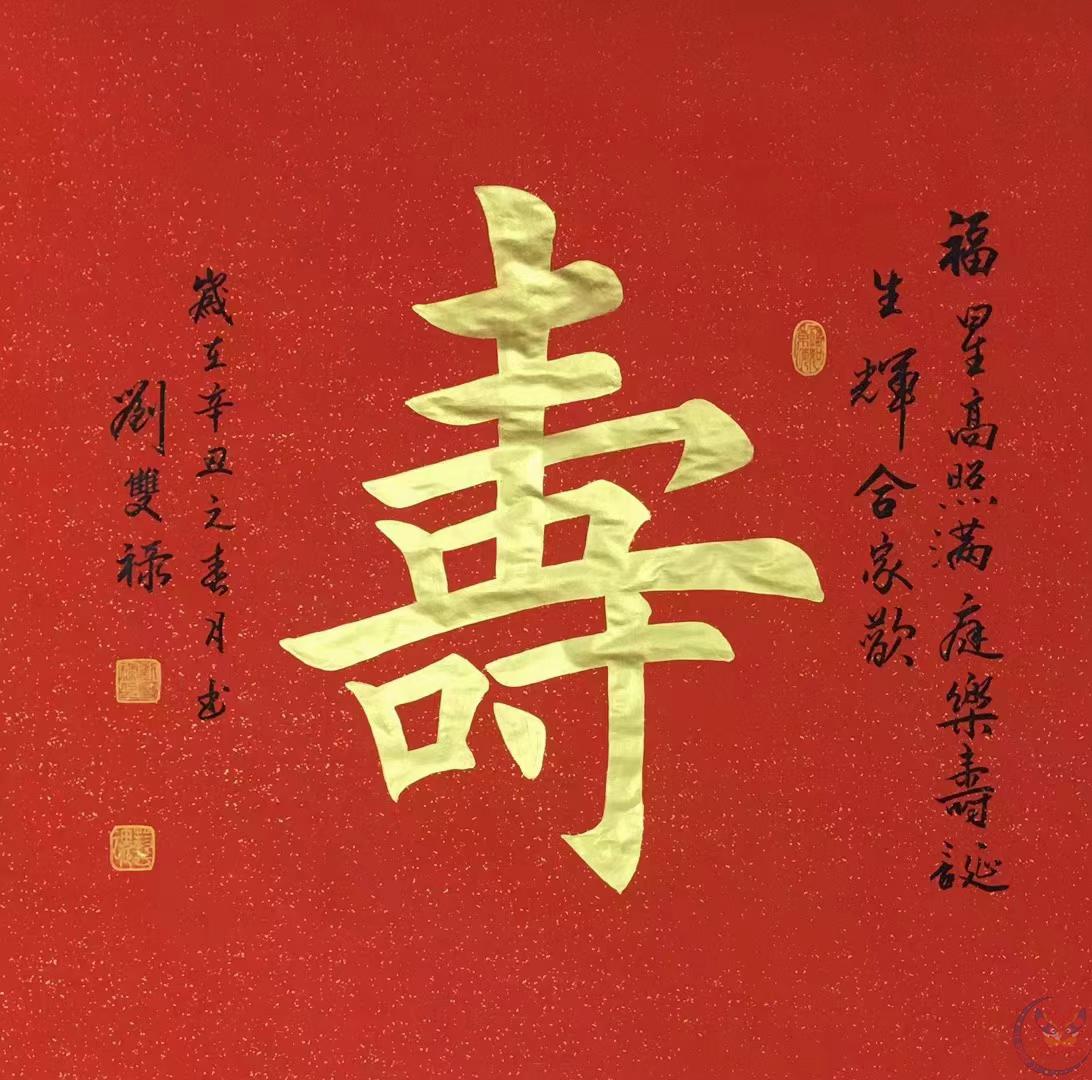 福星高照满庭樂壽誕
生輝合家歡
壽
歲在辛丑之春月书
劉雙祿